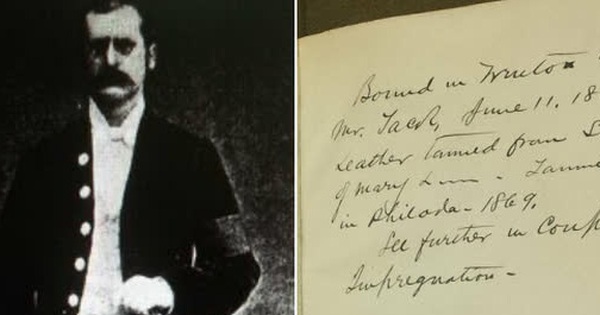 Bound in
Mr. Jacob, June 11. 18
Leather tanned from S
of Mary
in Philada - 1869.
See further in Coup
Impregnation -